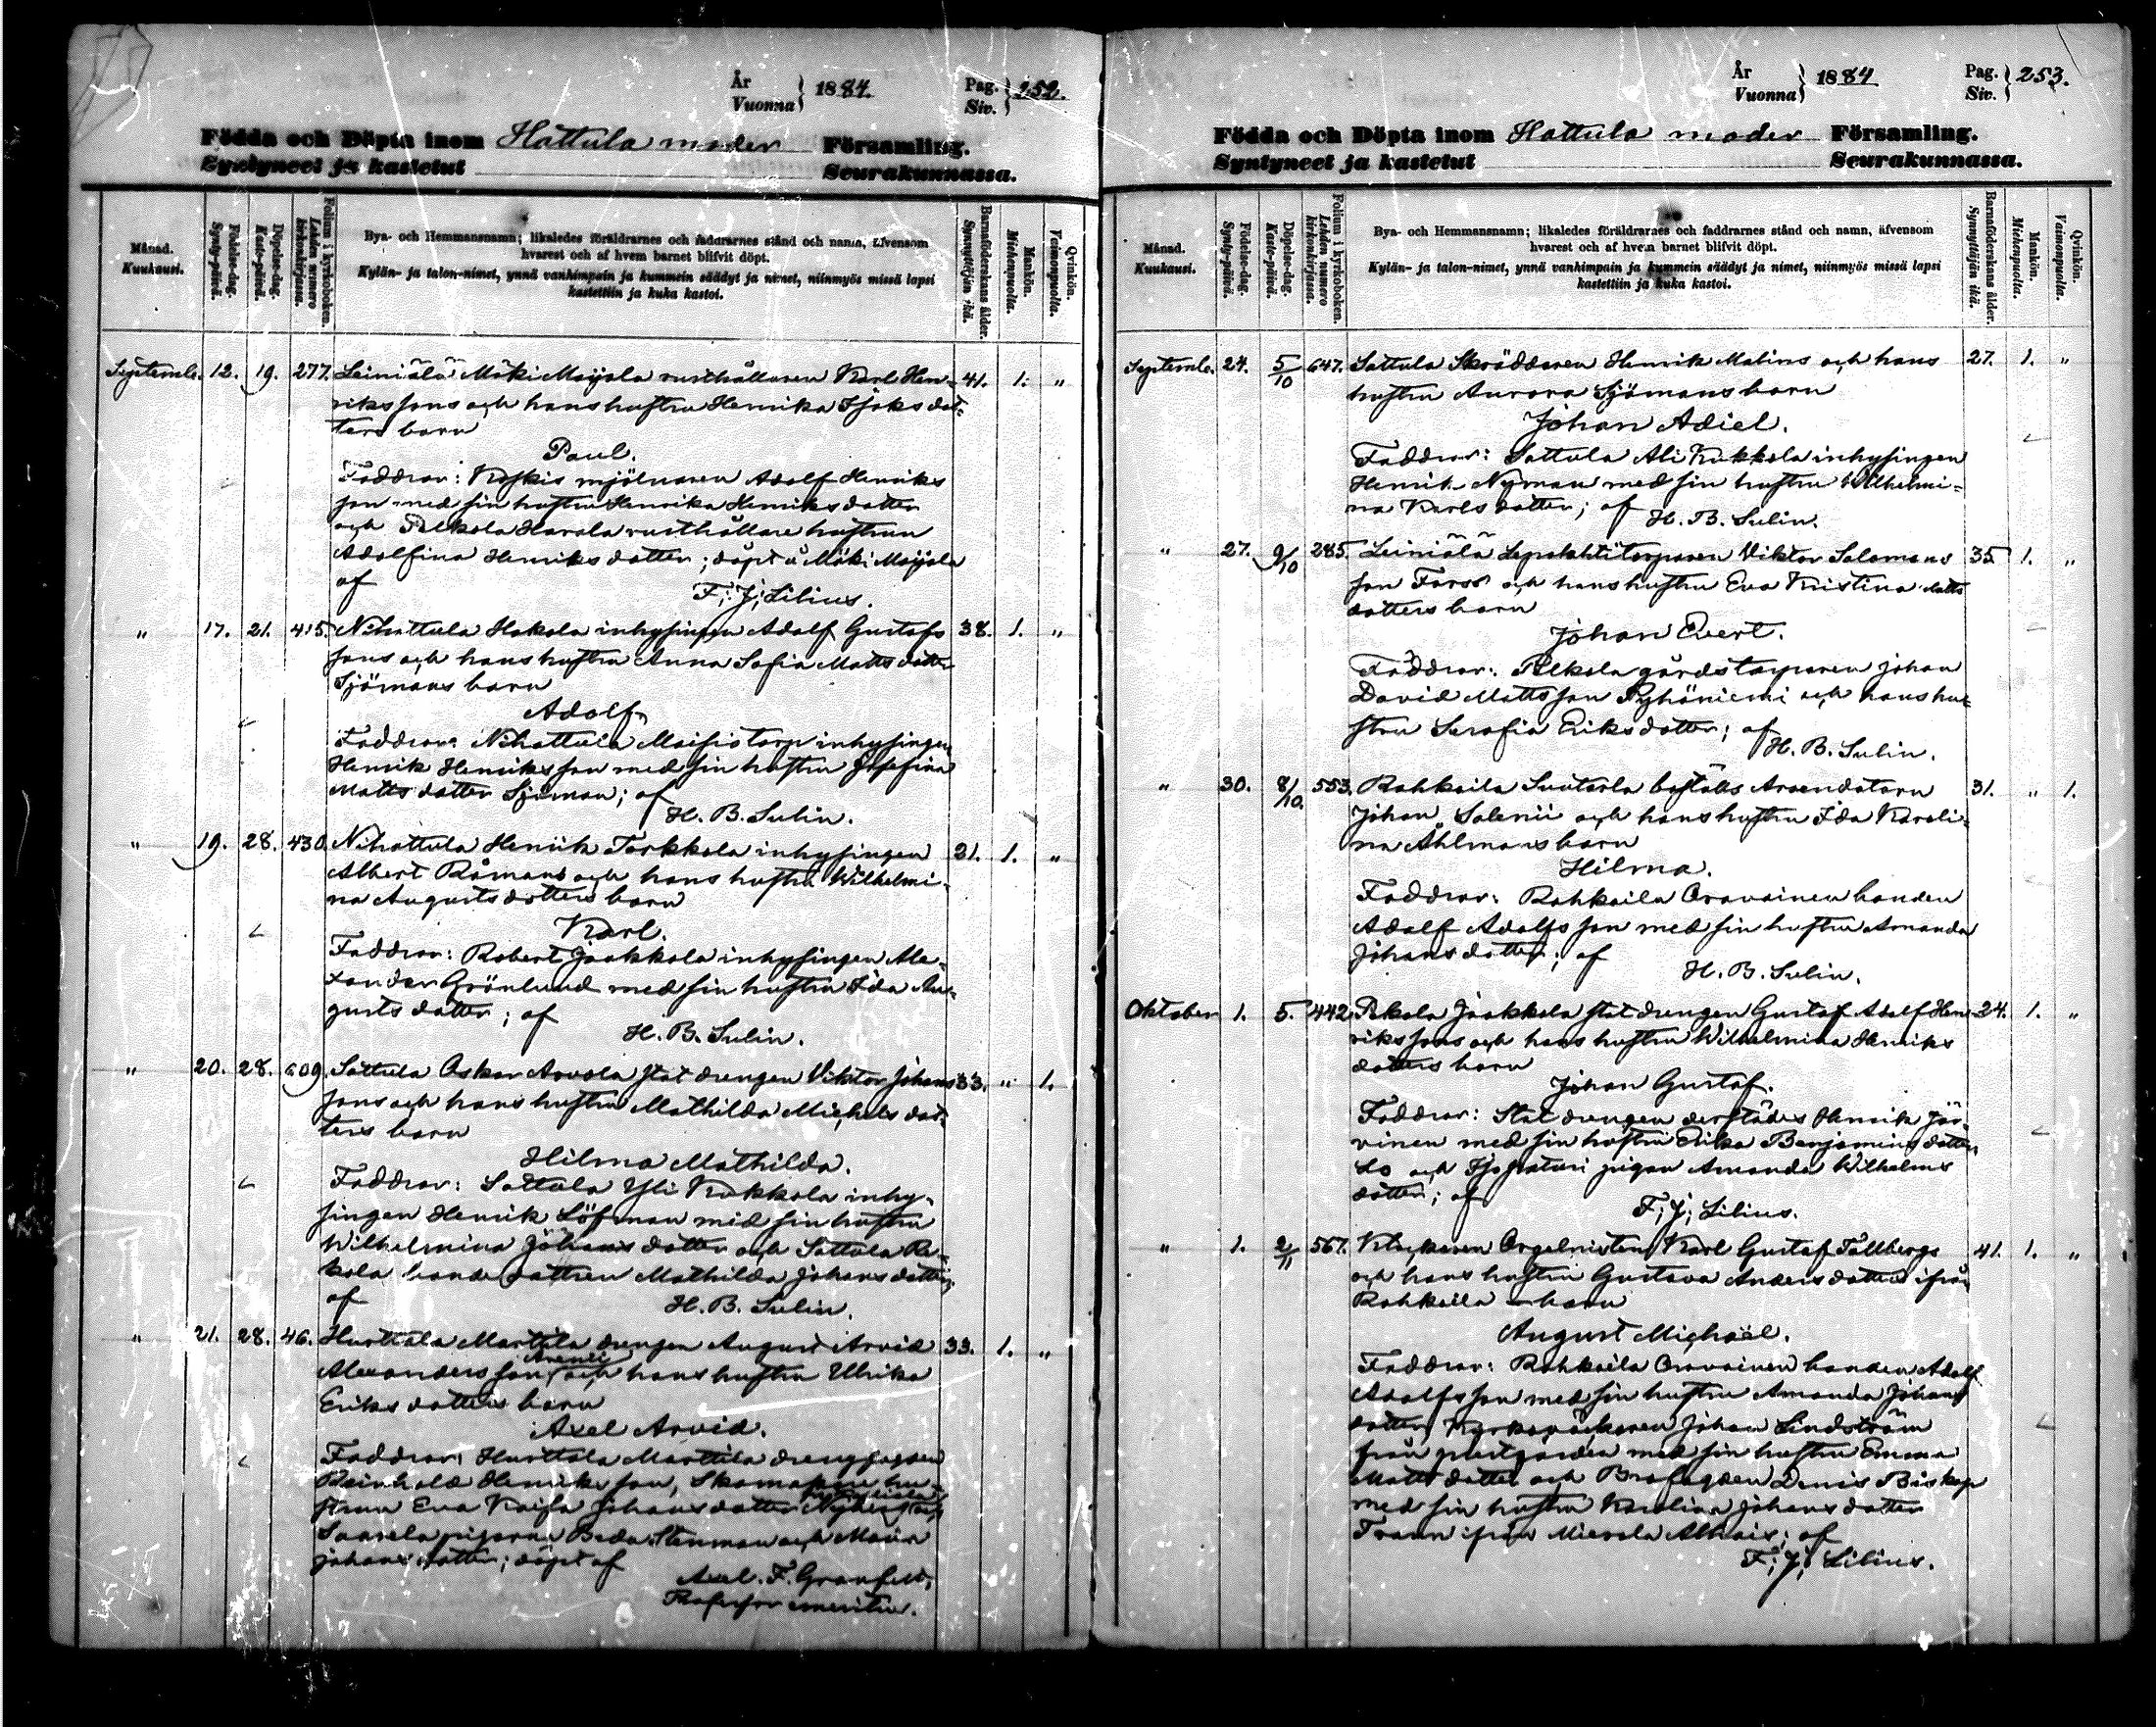 År
Vuonna } 1884. Pag.
Siv. } 252.
Födda och Döpta inom Hattula moder Församling.
Syntyneet ja kastetut Seurakunnassa.
Månad.
Kuukausi.
Födelse-dag.
Synty-päivä.
Döpelse-dag.
Kaste-päivä.
Folium i kyrkoboken.
Lehden numero kirkonkirjassa.
Bya- och Hemmansnamn; likaledes föräldrarnes och faddrarnes stånd och namn, äfvensom
hvarest och af hvem barnet blifvit döpt.
Kylän- ja talon-nimet, ynnä vanhimpain ja kummein säädyt ja nimet, niinmyös missä lapsi
kastettiin ja kuka kastoi.
Barnaföderskans ålder.
Synnyttäjän ikä.
Mankön.
Miehenpuolta.
Qvinkön.
Vaimonpuolta.
Septemb. 12. 19. 277. Leiniälä Mäki Maijala rusthållaren Karl Hen- 41. 1. "
riks sons och hans hustru Henrika Isaks dot-
ters barn
Paul.
Faddrar: Koskis mjölnaren Adolf Henriks
son med sin hustru Henrika Henriks dotter
och Pelkola Harola rusthållare hustrun
Adolfina Henriks dotter; döpt å Mäki Maijala
af F; J; Lilius.
" 17. 21. 415. Nihattula Hakala inhysingen Adolf Gustafs 38. 1. "
sons och hans hustru Anna Sofia Matts dotter
Sjömans barn
Adolf.
Faddrar: Nihattula Maisis torp inhysingen
Henrik Henriks son med sin hustru Josefina
Matts dotter Sjöman; af
H. B. Sulin.
" 19. 28. 430. Nihattula Henrik Torkkola inhysingen 31. 1. "
Albert Råmans och hans hustru Wilhelmi-
na Augusts dotters barn
Karl.
Faddrar: Robert Jaakkola inhysingen Ale-
xander Grönlund med sin hustru Ida Au-
gusts dotter; af
H. B. Sulin.
" 20. 28. 609. Sattula Oskar Arvola stat drengen Viktor Johans 33. " 1.
sons och hans hustru Mathilda Michels dot-
ters barn
Hilma Mathilda.
Faddrar: Sattula Yli Kukkola inhy-
singen Henrik Löfman med sin hustru
Wilhelmina Johans dotter och Sattula Re-
kola bonde dottren Mathilda Johans dotter;
af H. B. Sulin.
" 21. 28. 46. Hurttala Marttila drengen August Arvid 33. 1. "
Alexanders son och hans hustru Ulrika
Eriks dotters barn
Axel Arvid.
Faddrar: Hurttala Marttila drengfogden
Reinhold Henriks son, Skomakare hu-
strun Eva Kajsa Johans dotter Nyberg
Saarela pigorna Beda Stenman och Maria
Johans dotter; döpt af
Axel. F. Granfelt,
Professor emeritus.
År
Vuonna } 1884 Pag.
Siv. } 253.
Födda och Döpta inom Hattula moder Församling.
Syntyneet ja kastetut Seurakunnassa.
Månad.
Kuukausi.
Födelse-dag.
Synty-päivä.
Döpelse-dag.
Kaste-päivä.
Folium i kyrkoboken.
Lehden numero kirkonkirjassa.
Bya- och Hemmansnamn; likaledes föräldrarnes och faddrarnes stånd och namn, äfvensom
hvarest och af hvem barnet blifvit döpt.
Kylän- ja talon-nimet, ynnä vanhimpain ja kummein säädyt ja nimet, niinmyös missä lapsi
kastettiin ja kuka kastoi.
Barnaföderskans ålder.
Synnyttäjän ikä.
Mankön.
Miehenpuolta.
Qvinkön.
Vaimonpuolta.
Septemb. 24. 5/10 647. Sattula Skräddaren Henrik Malins och hans 27. 1. "
hustru Aurora Sjömans barn
Johan Adiel.
Faddrar: Sattula Ali Kukkola inhysingen
Henrik Nyman med sin hustru Wilhelmi-
na Karls dotter; af H. B. Sulin.
" 27. 9/10 285. Leiniälä Lepolahti torparen Viktor Salomons 35. 1. "
son Forss och hans hustru Eva Kristina Matts
dotters barn
Johan Evert.
Faddrar: Pelkola gårds torparen Johan
David Matts son Pyhäniemi och hans hu-
stru Serafia Eriks dotter; af
H. B. Sulin.
" 30. 8/10. 553. Rahkoila Suutarla boställs Arrendatorn 31. " 1.
Johan Salenii och hans hustru Ida Karoli-
na Åhlmans barn
Hilma.
Faddrar: Rahkoila Oravainen bonden
Adolf Adolfs son med sin hustru Amanda
Johans dotter; af H. B. Sulin.
Oktober 1. 5. 442. Pekola Jaakkola stat drengen Gustaf Adolf Hen- 24. 1. "
riks sons och hans hustru Wilhelmina Henriks
dotters barn
Johan Gustaf.
Faddrar: Stat drengen derstädes Henrik Jär-
vinen med sin hustru Erika Benjamins dotter
och pigan Amanda Wilhelms
dotter; af
F; J; Lilius.
" 1. 2/11 567. Klockaren Orgelnisten Karl Gustaf Tallbergs 41. 1. "
och hans hustru Gustava Anders dotters ifrån
Rahkoila barn
August Michaël.
Faddrar: Rahkoila Oravainen bonden Adolf
Adolfs son med sin hustru Amanda Johans
dotter, Johan Lindström
från prestgården med sin hustru Emma
Matts dotter och Denis Biskop
med sin hustru Karolina Johans dotter
ifrån Mierola; af
F; J; Lilius.